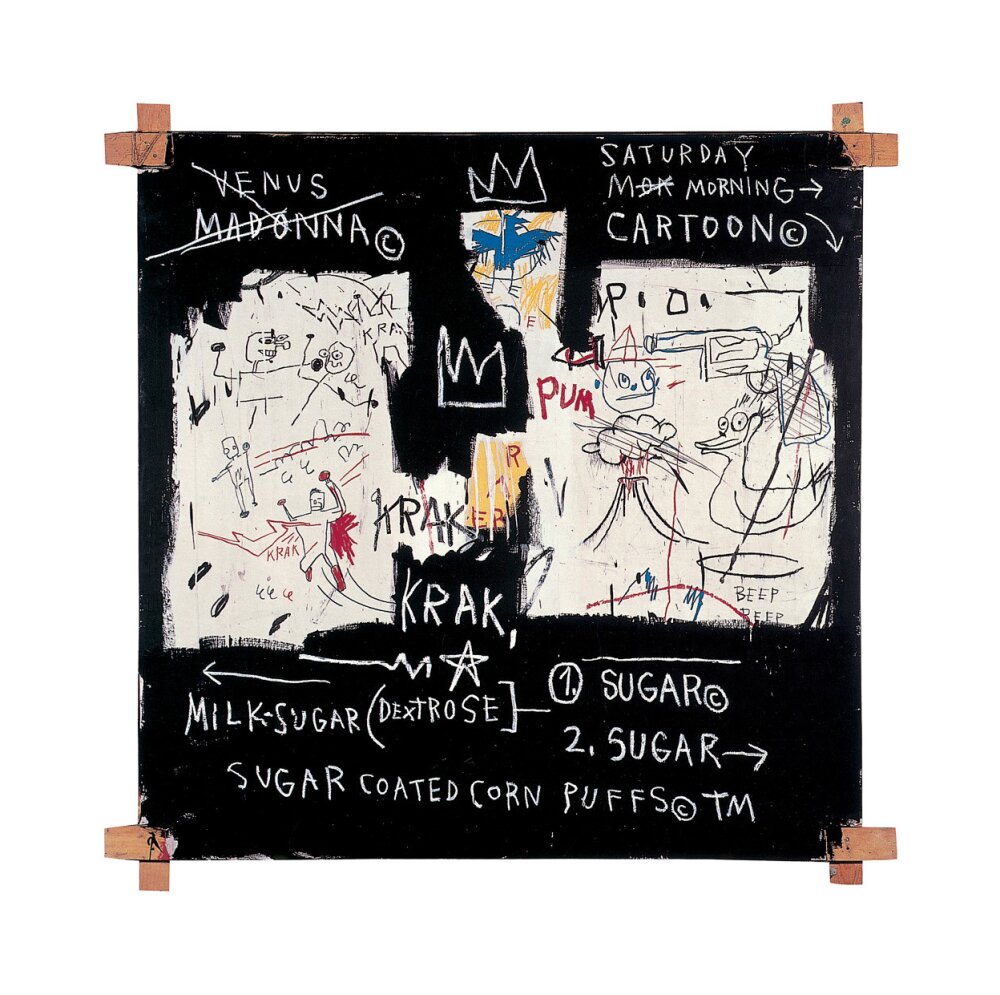 VENUS
MADONNA©
SATURDAY
MOR MORNING→
CARTOON©
KRAK
P
O
E
PUM
R
KRAK
KRAK
ER
BEEP
BEEP
KRAK,
MILK-SUGAR (DEXTROSE]
1. SUGAR©
2. SUGAR→
SUGAR COATED CORN PUFFS© TM